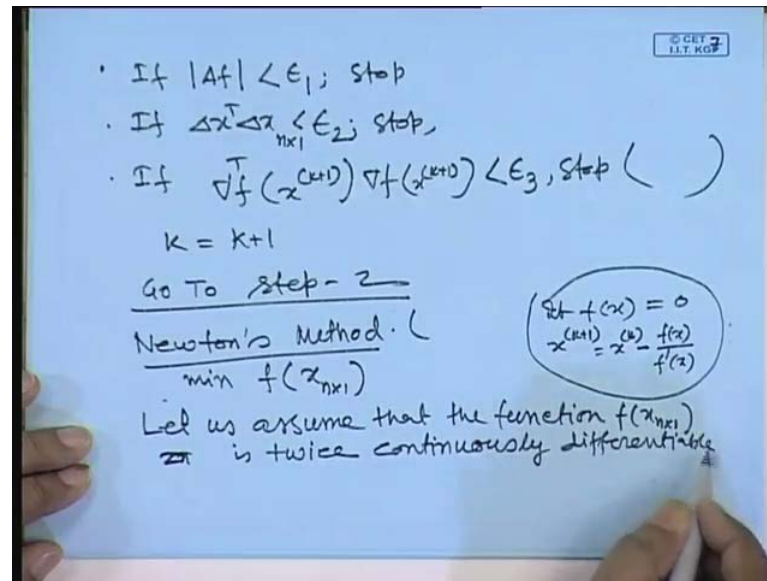 © CET
I.I.T. KGP
7
· If |Δf| < ε₁; stop
· If Δxᵀ Δx < ε₂; stop,
n×1
· If ∇ᵀf (x⁽ᵏ⁺¹⁾) ∇f(x⁽ᵏ⁺¹⁾) < ε₃, stop ( )
k = k+1
Go To step - 2
Newton's Method. (
min f(xₙₓ₁)
f(x) = 0
x⁽ᵏ⁺¹⁾ = x⁽ᵏ⁾ - f(x)/f'(x)
Let us assume that the function f(xₙₓ₁)
is twice continuously differentiable